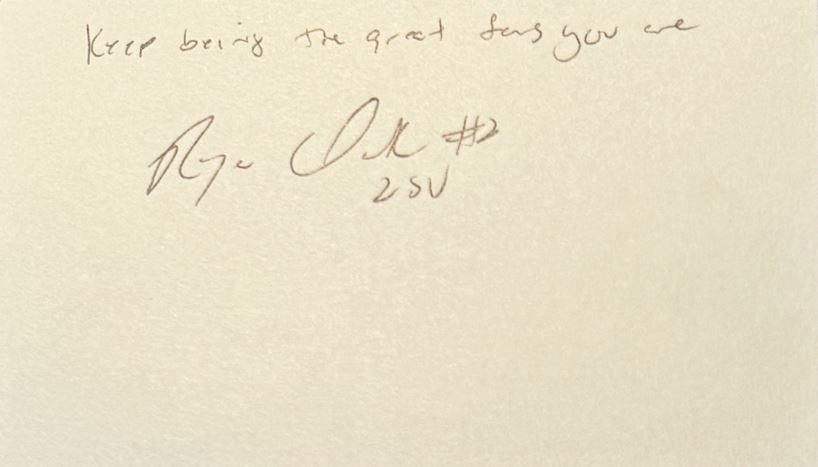 Keep being the great fans you are
Ryan #2
2 SV